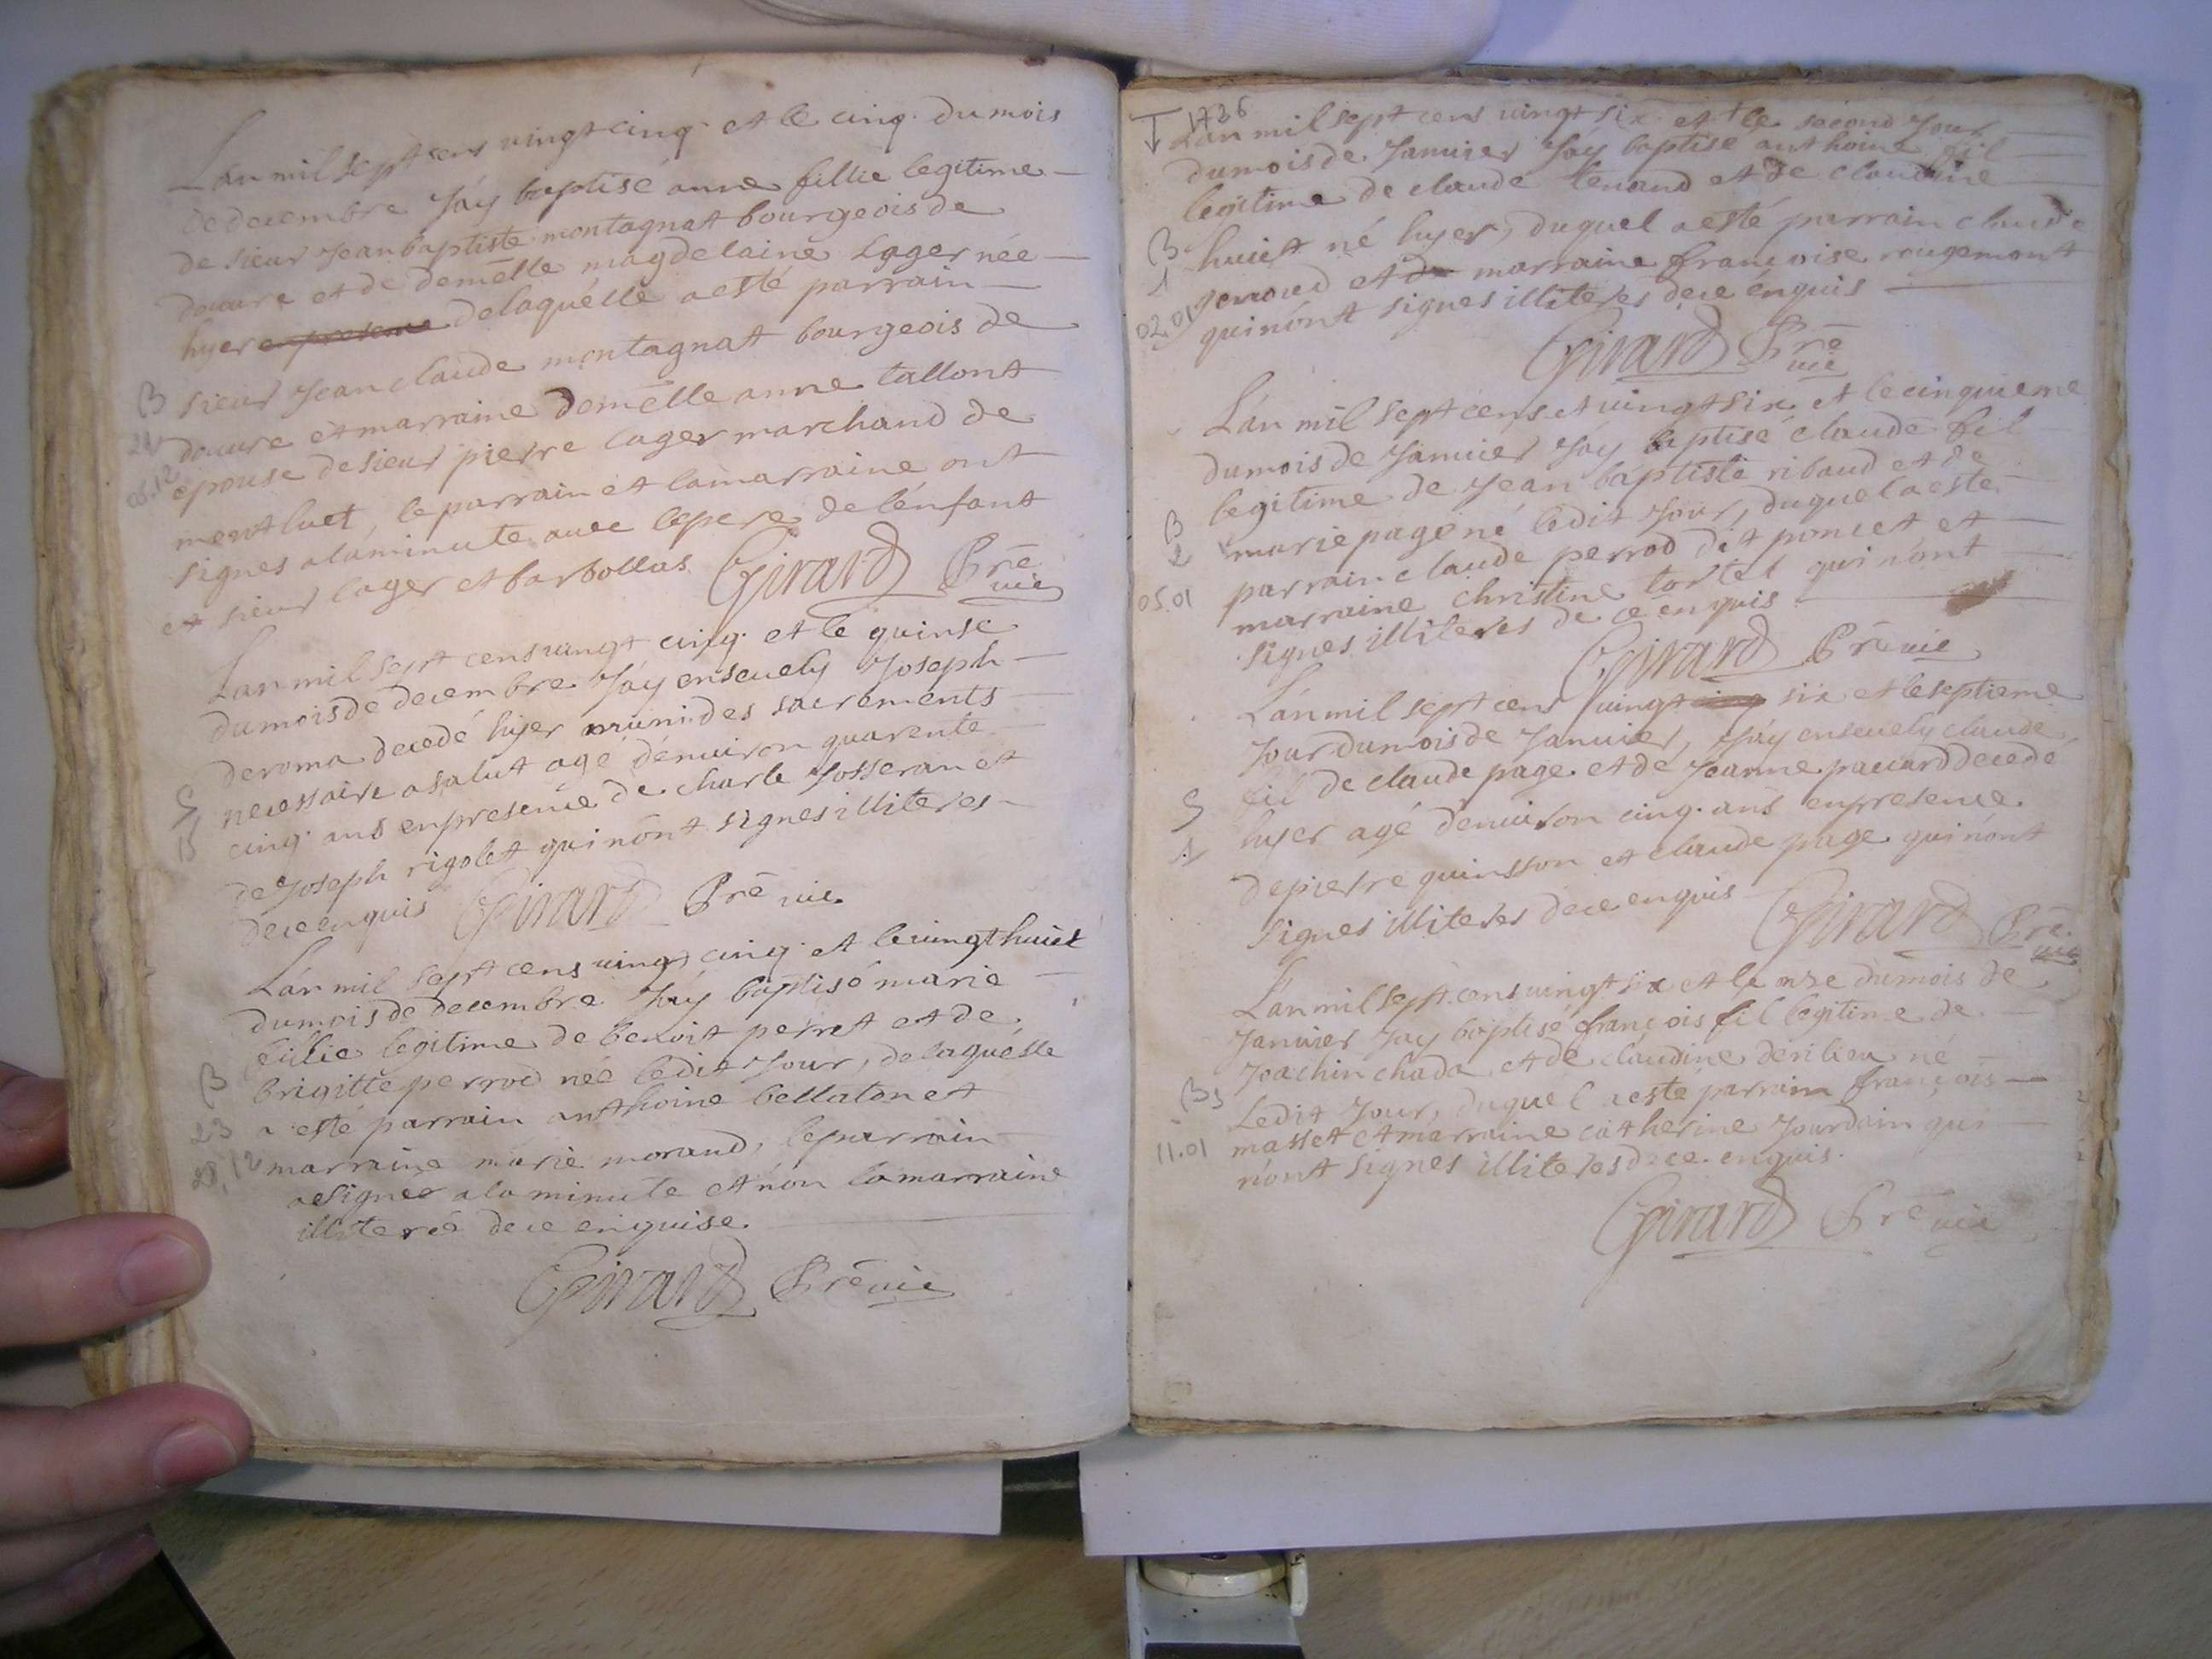 Lan mil sept cens vingt cinq. et le cinq. du mois
de decembre Jáy baptisé anne fillie legitime
de sieur Jean baptiste montagnat bourgeois de
douure et de demelle magdelaine Lager née
hyer en presence delaquelle aesté parrain
sieur Jean claude montagnat bourgeois de
B
douure et marraine demelle anne tallont
24
epouse de sieur pierre lager marchand de
05.12
montluet, le parrain et la marraine ont
signes a láminute auec lepere de lénfant
et sieur lager et barbollas Girard Prē
vie
Lan mil sept cens vingt cinq. et le quinse
dumois de decembre Jáy enseuely Joseph
deroma decedé hyer muni des sacrements
necessaire asalut agé dénuiron quarente
S
cinq. ans enpresence de charle Josseran et
15
de Joseph rigolet qui nónt signes illiteres
dece enquis Girard Prē vie
Lán mil sept cens vingt cinq. et le vingt huict
dumois de decembre Jáy baptisé marie
fillie legitime de benoit perret et de
B
brigitte perrod née ledit Jour, delaquelle
23
a esté parrain anthoine bellaton et
28.12
marraine marie morand, leparrain
a signer a la minute et nón lamarraine
illiterée dece enquise.
Girard Prē vie
1736
Lán mil sept cens vingt six et le second Jour
dumois de Januier Jáy baptisé anthoine fil
legitime de claude tenand et de claudine
B
huict né hyer, duquel aesté parrain claude
1
genoud et de marraine françoise rougemont
02.01
qui nónt signes illiteres dece énquis
Girard Prē
vie
Lán mil sept cens et vingt six et le cinquieme
dumois de Januier Jáy baptisé claude fil
legitime de Jean baptiste ribaud et de
B
marie page né ledit Jour, duquel aesté
2
parrain claude perrod dit poncet et
05.01
marraine christine tortet qui nónt
signes illiteres de ce enquis
Girard Prē vie
Lán mil sept cens vingt cinq six et le septieme
Jour dumois de Januier, Jáy enseuely claude
fil de claude page et de Jeanne paccard decedé
S
hyer agé denuiron cinq. ans enpresence
1
de pierre quinsson et claude page qui nónt
signes illiteres dece enquis
Girard Prē
vie
Lán mil sept. cens vingt six et le onze dumois de
Januier Jay baptisé françois fil legitime de
Joachin chada et de claudine derilieu né
B 3
Ledit Jour, duquel aesté parrain françois
11.01
masset et marraine catherine Jourdain qui
nónt signes illiteres dece enquis.
Girard Prē vie